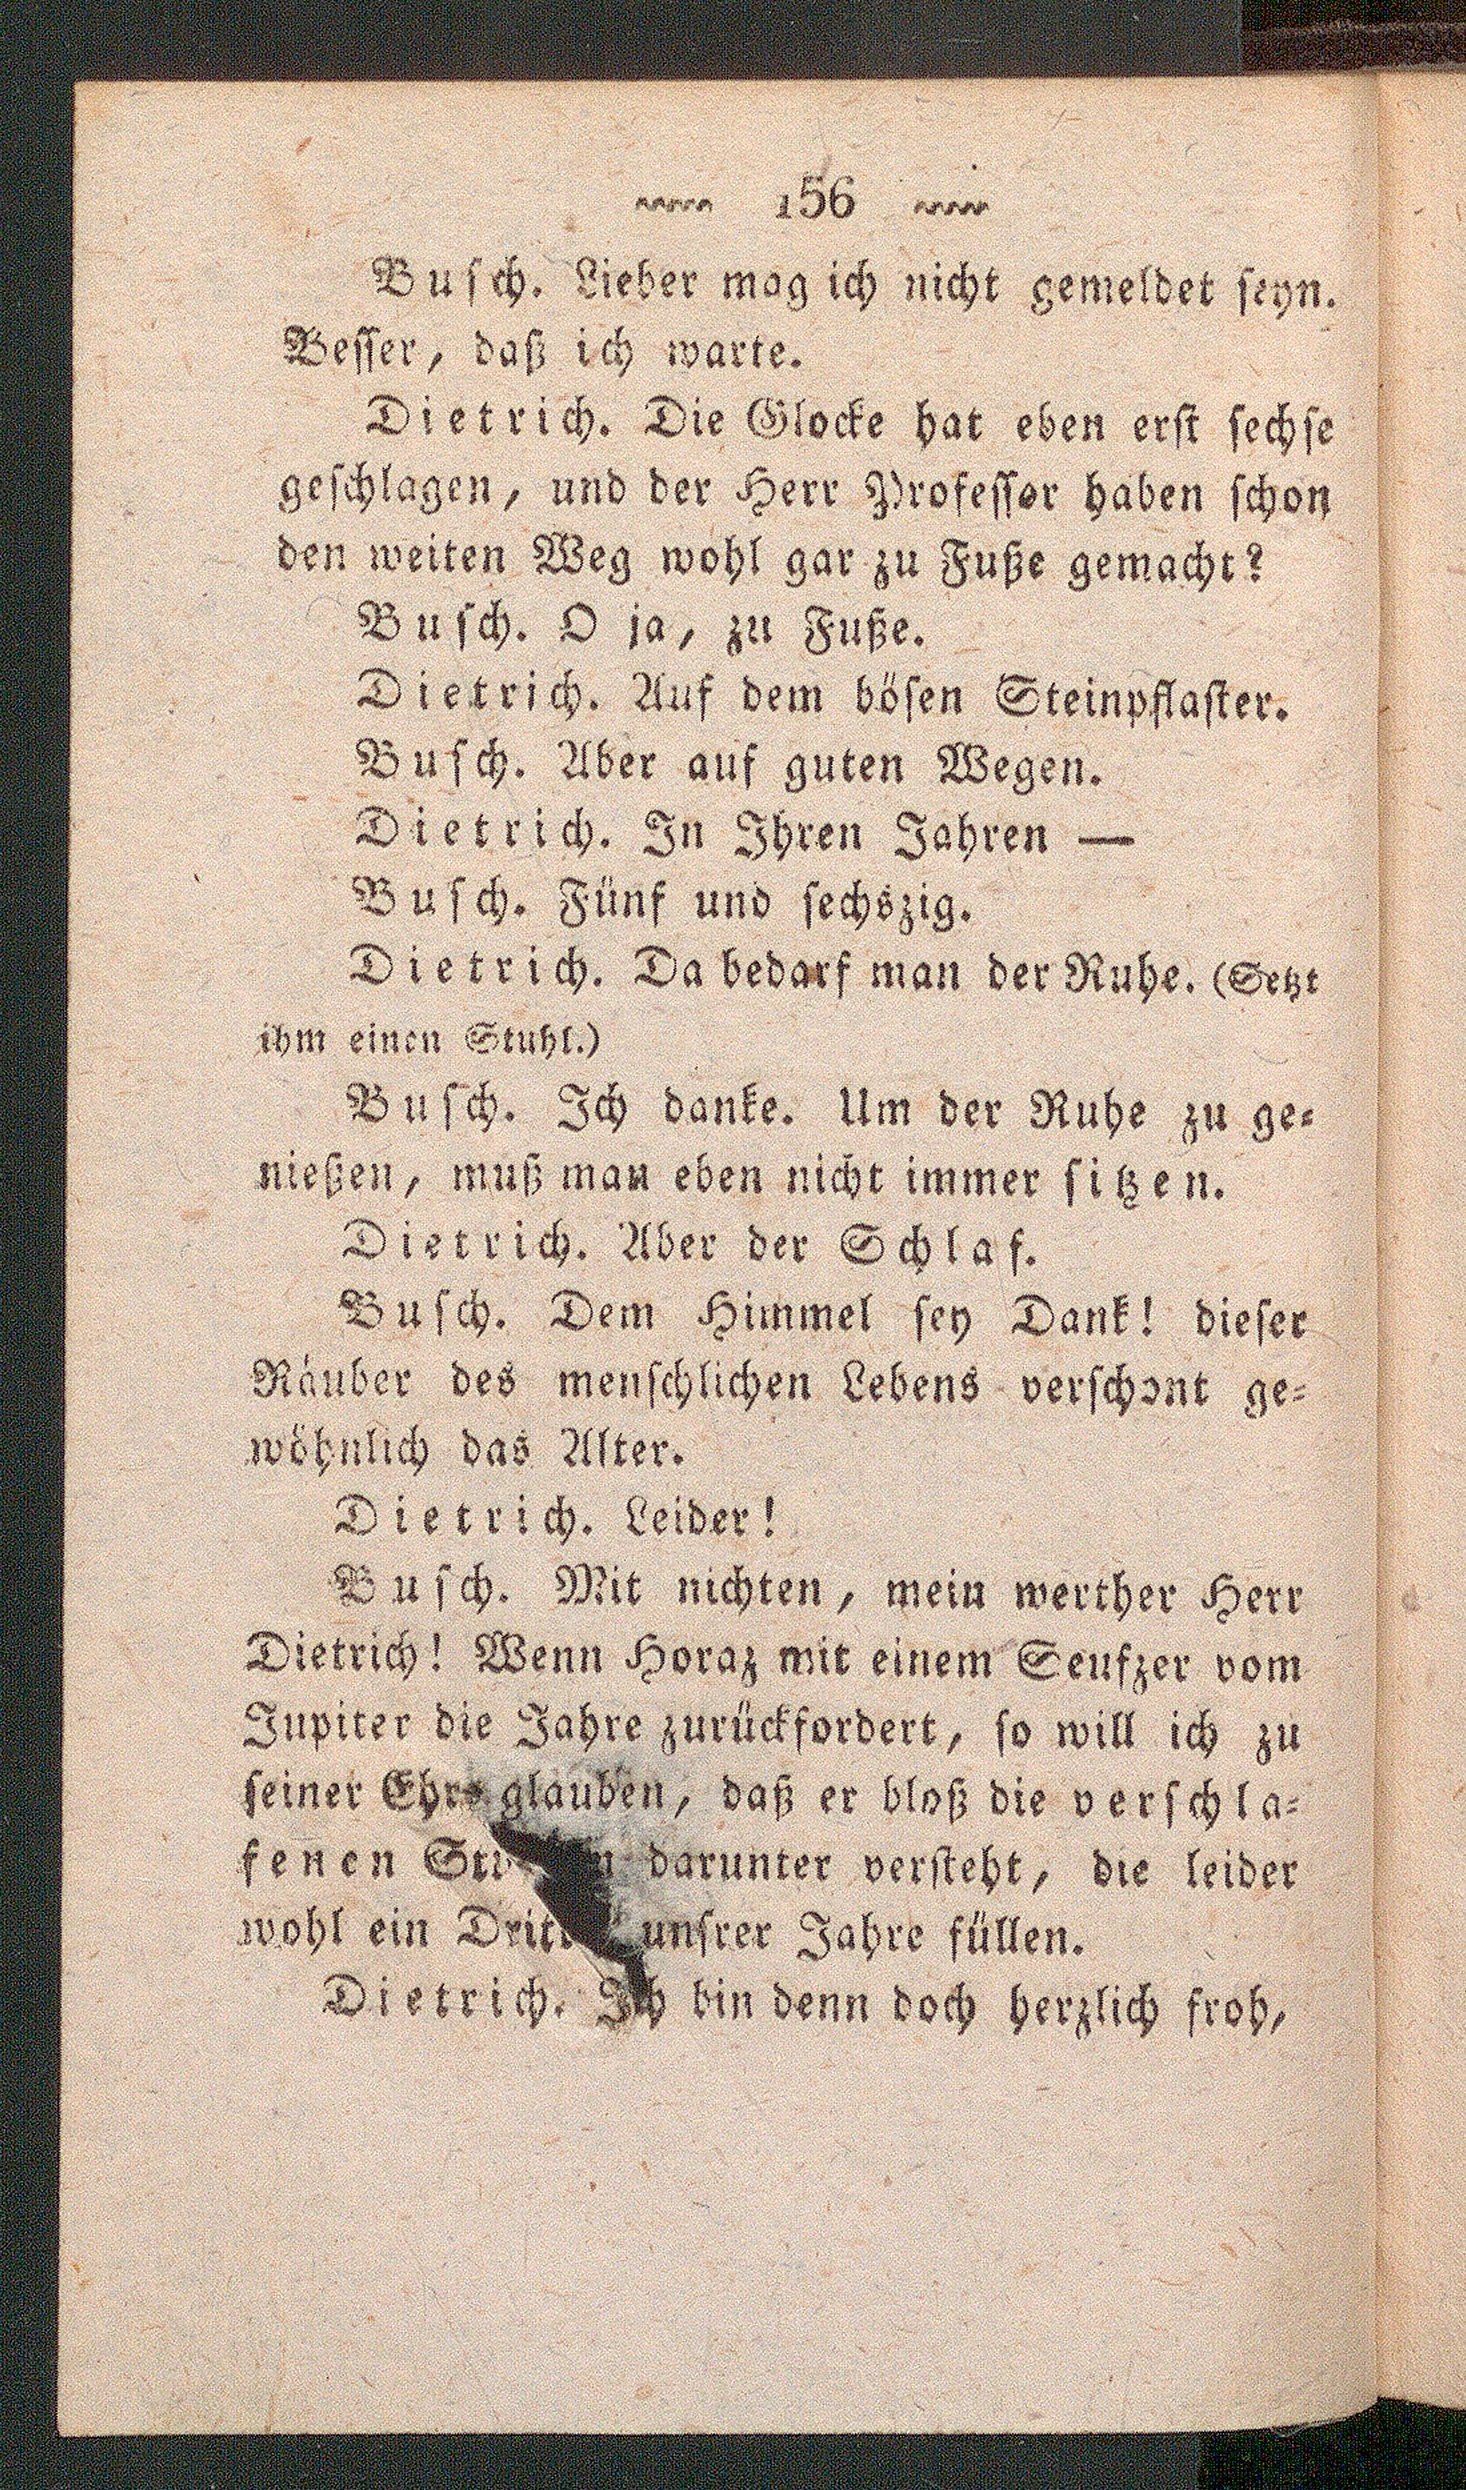 156
Busch. Lieber mag ich nicht gemeldet seyn.
Besser, daß ich warte.
Dietrich. Die Glocke hat eben erst sechse
geschlagen, und der Herr Professor haben schon
den weiten Weg wohl gar zu Fuße gemacht?
Busch. O ja, zu Fuße.
Dietrich. Auf dem bösen Steinpflaster.
Busch. Aber auf guten Wegen.
Dietrich. In Ihren Jahren —
Busch. Fünf und sechszig.
Dietrich. Da bedarf man der Ruhe. (Setzt
ihm einen Stuhl.)
Busch. Ich danke. Um der Ruhe zu ge-
nießen, muß man eben nicht immer sitzen.
Dietrich. Aber der Schlaf.
Busch. Dem Himmel sey Dank! dieser
Räuber des menschlichen Lebens verschont ge-
wöhnlich das Alter.
Dietrich. Leider!
Busch. Mit nichten, mein werther Herr
Dietrich! Wenn Horaz mit einem Seufzer vom
Jupiter die Jahre zurückfordert, so will ich zu
seiner Ehre glauben, daß er bloß die verschla-
fenen darunter versteht, die leider
wohl ein unsrer Jahre füllen.
Dietrich. Ich bin denn doch herzlich froh,